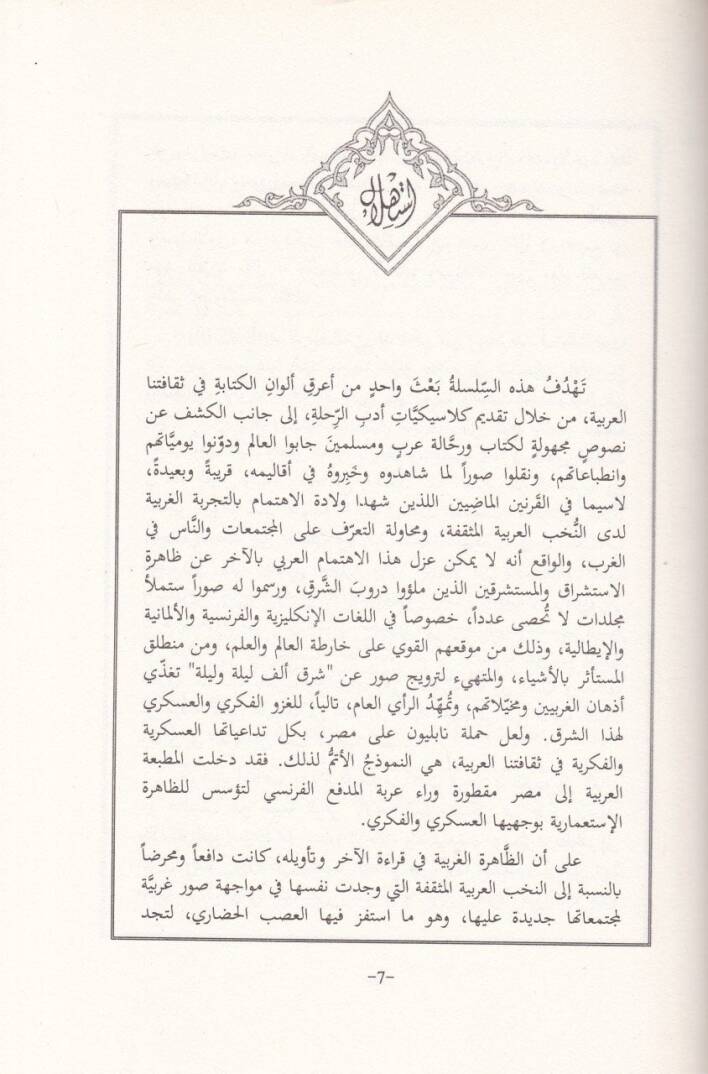 استهلال
تَهْدُفُ هذه السِّلسلةُ بَعْثَ واحدٍ من أعرقِ ألوانِ الكتابةِ في ثقافتنا
العربية، من خلال تقديم كلاسيكيَّاتِ أدبِ الرِّحلةِ، إلى جانب الكشف عن
نصوصٍ مجهولةٍ لكتاب ورحَّالة عربٍ ومسلمينَ جابوا العالم ودوّنوا يوميَّاتهم
وانطباعاتهم، ونقلوا صوراً لما شاهدوه وخَبِروهُ في أقاليمه، قريبةً وبعيدةً،
لاسيما في القَرنين الماضيين اللذين شهدا ولادة الاهتمام بالتجربة الغربية
لدى النُّخب العربية المثقفة، ومحاولة التعرّف على المجتمعات والنَّاس في
الغرب، والواقع أنه لا يمكن عزل هذا الاهتمام العربي بالآخر عن ظاهرةِ
الاستشراق والمستشرقين الذين ملؤوا دروبَ الشَّرقِ، ورسموا له صوراً ستملأ
مجلدات لا تُحصى عدداً، خصوصاً في اللغات الإنكليزية والفرنسية والألمانية
والإيطالية، وذلك من موقعهم القوي على خارطة العالم والعلم، ومن منطلق
المستأثر بالأشياء، والمتهيء لترويج صور عن "شرق ألف ليلة وليلة" تغذّي
أذهان الغربيين ومخيّلاتهم، وتُمهِّدُ الرأي العام، تالياً، للغزو الفكري والعسكري
لهذا الشرق. ولعل حملة نابليون على مصر، بكل تداعياتها العسكرية
والفكرية في ثقافتنا العربية، هي النموذجُ الأتمُّ لذلك. فقد دخلت المطبعة
العربية إلى مصر مقطورة وراء عربة المدفع الفرنسي لتؤسس للظاهرة
الإستعمارية بوجهيها العسكري والفكري.
على أن الظَّاهرة الغربية في قراءة الآخر وتأويله، كانت دافعاً ومحرضاً
بالنسبة إلى النخب العربية المثقفة التي وجدت نفسها في مواجهة صور غربيَّة
لمجتمعاتها جديدة عليها، وهو ما استفز فيها العصب الحضاري، لتجد
-7-